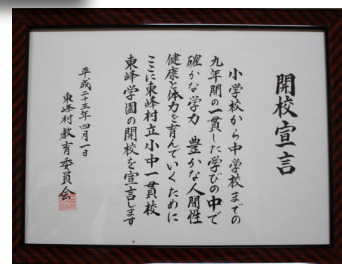 開校宣言
小学校から中学校までの
九年間の一貫した学びの中で
確かな学力 豊かな人間性
健康と体力を育んでいくために
ここに東峰村立小中一貫校
東峰学園の開校を宣言します
平成二十三年四月一日
東峰村教育委員会